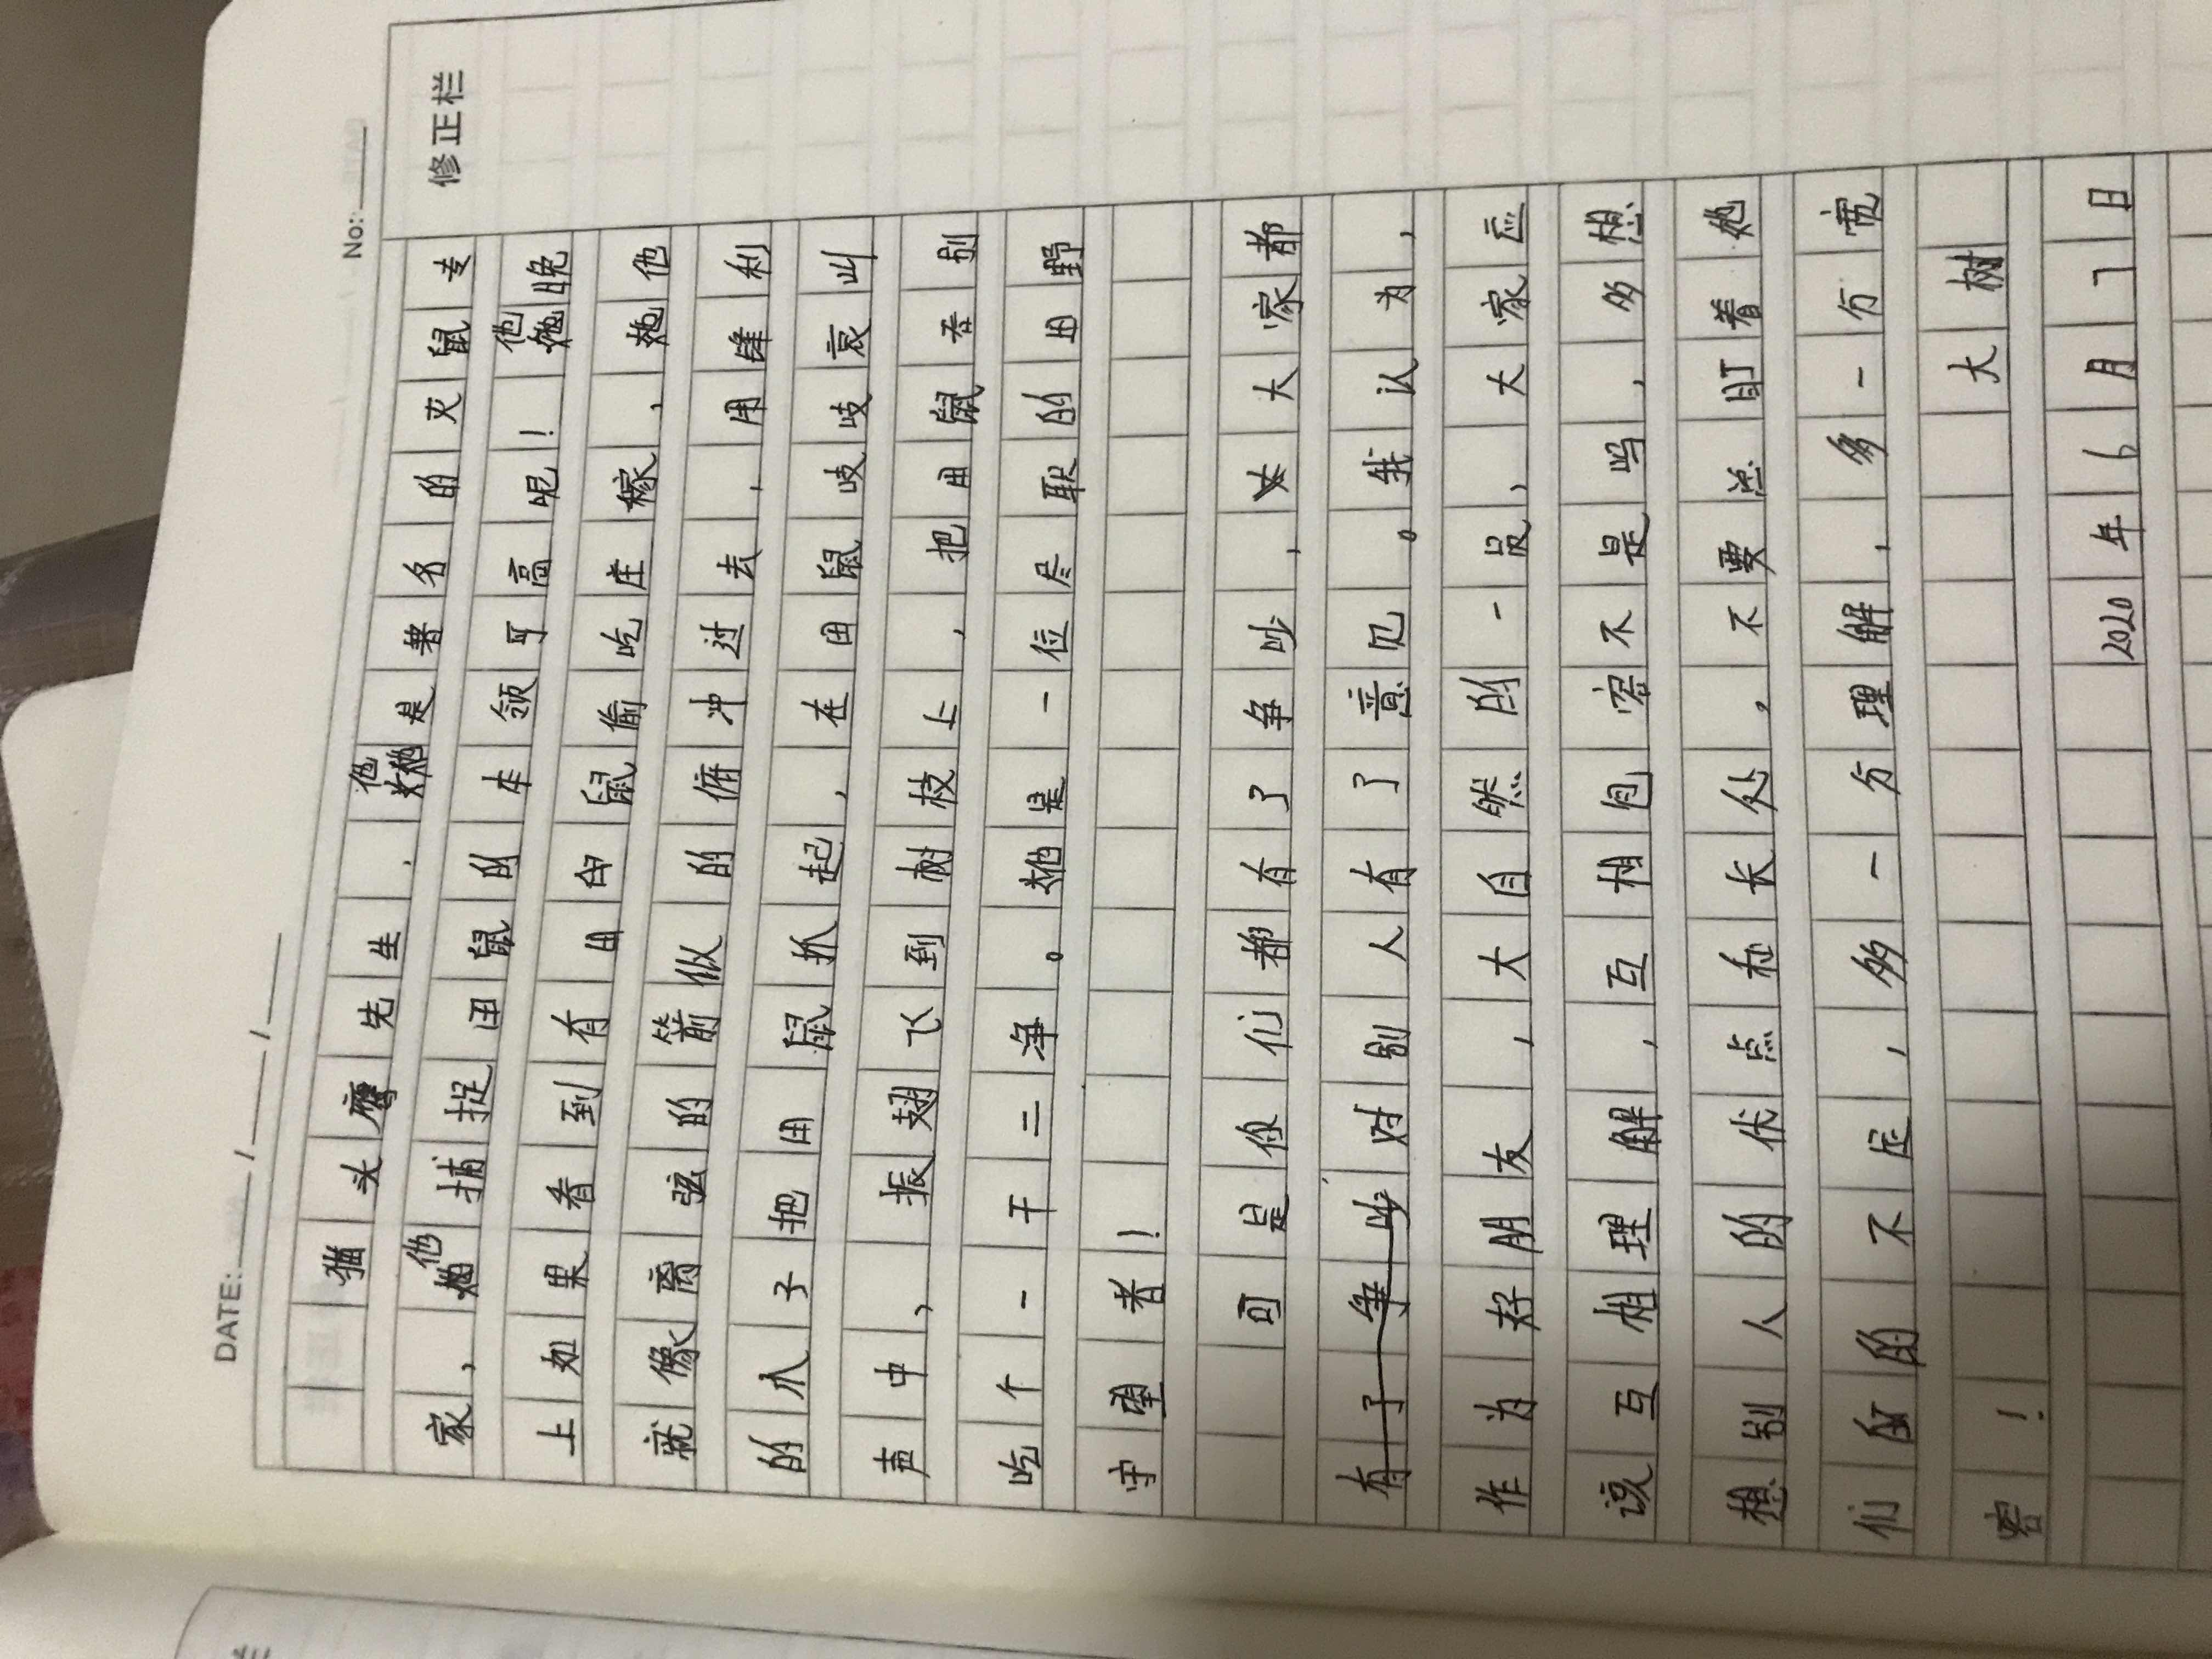 DATE: / /
No:
修正栏
猫头鹰先生,他是著名的灭鼠专
家,他捕捉田鼠的本领可高呢!他晚
上如果看到有田鼠偷吃庄稼,他
就像离弦的箭似的俯冲过去,用锋利
的爪子把田鼠抓起,在田鼠吱吱哀叫
声中,振翅飞到树枝上,把田鼠吞别
吃个一干二净。他是一位尽职的田野
守望者!
可是你们都有了争吵,大家都
有了争吵对别人有了意见。我认为,
作为好朋友,大自然的一员,大家应
该互相理解,互相包容不是吗,多想
想别人的优点和长处,不要总盯着她
们的不足,多一分理解,多一份宽
容! 大树
2020年6月7日